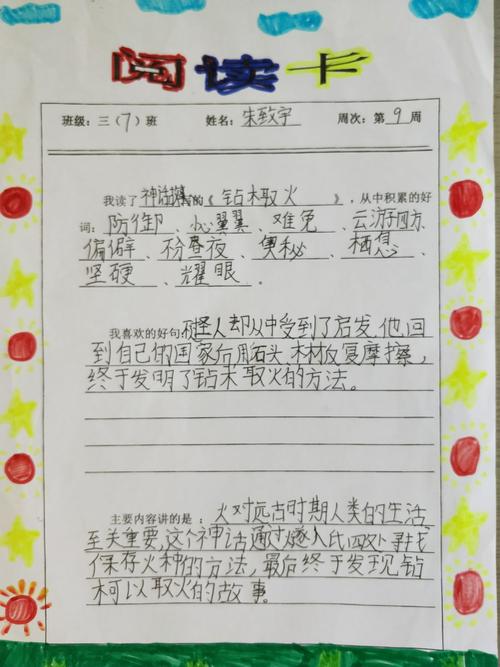 阅读卡
班级：三（7）班 姓名：朱致宇 周次：第9周
我读了神话故事的《钻木取火》，从中积累的好
词：防御、小心翼翼、难免、云游四方、
偏僻、不分昼夜、奥秘、栖息、
坚硬、耀眼。
我喜欢的好句：怪人却从中受到了启发。他回
到自己的国家后用石头、木材反复摩擦，
终于发明了钻木取火的方法。
主要内容讲的是：火对远古时期人类的生活
至关重要，这个神话通过燧人氏四处寻找
保存火种的方法，最后终于发现钻
可以取火的故事。